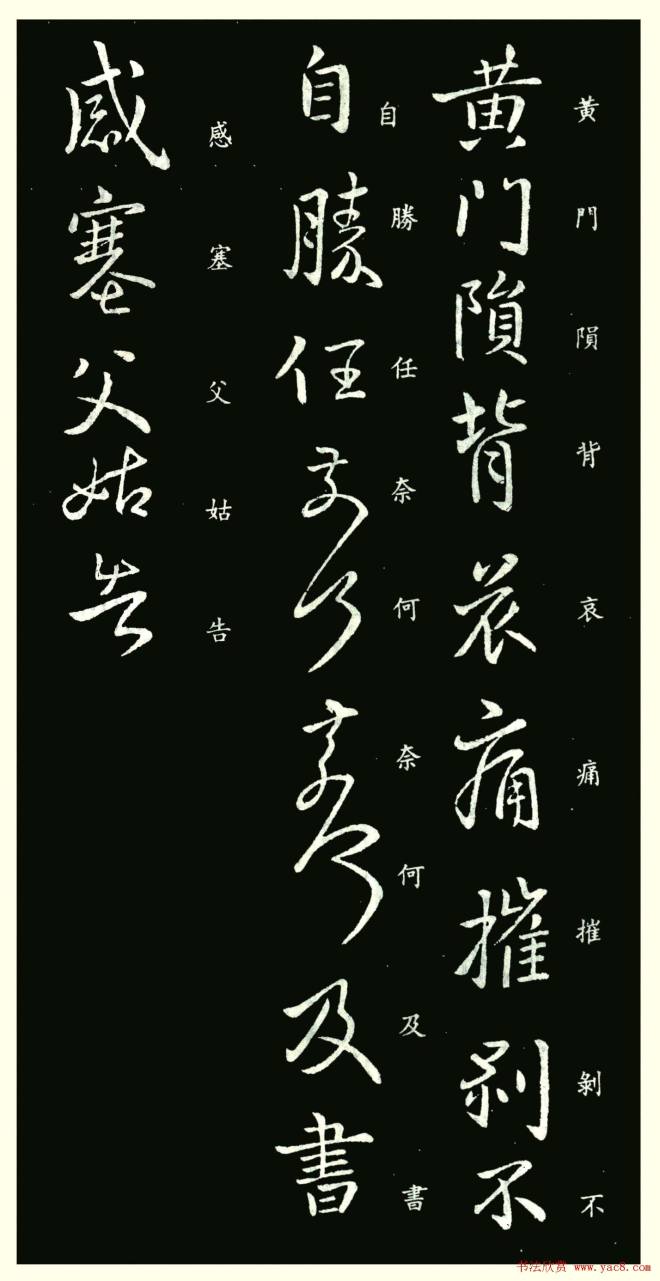 黃門隕背哀痛摧剝不
黃門隕背哀痛摧剝不
自勝任奈何奈何及書
自勝任奈何奈何及書
感塞父姑告
感塞父姑告
书法欣赏 www.yac8.com